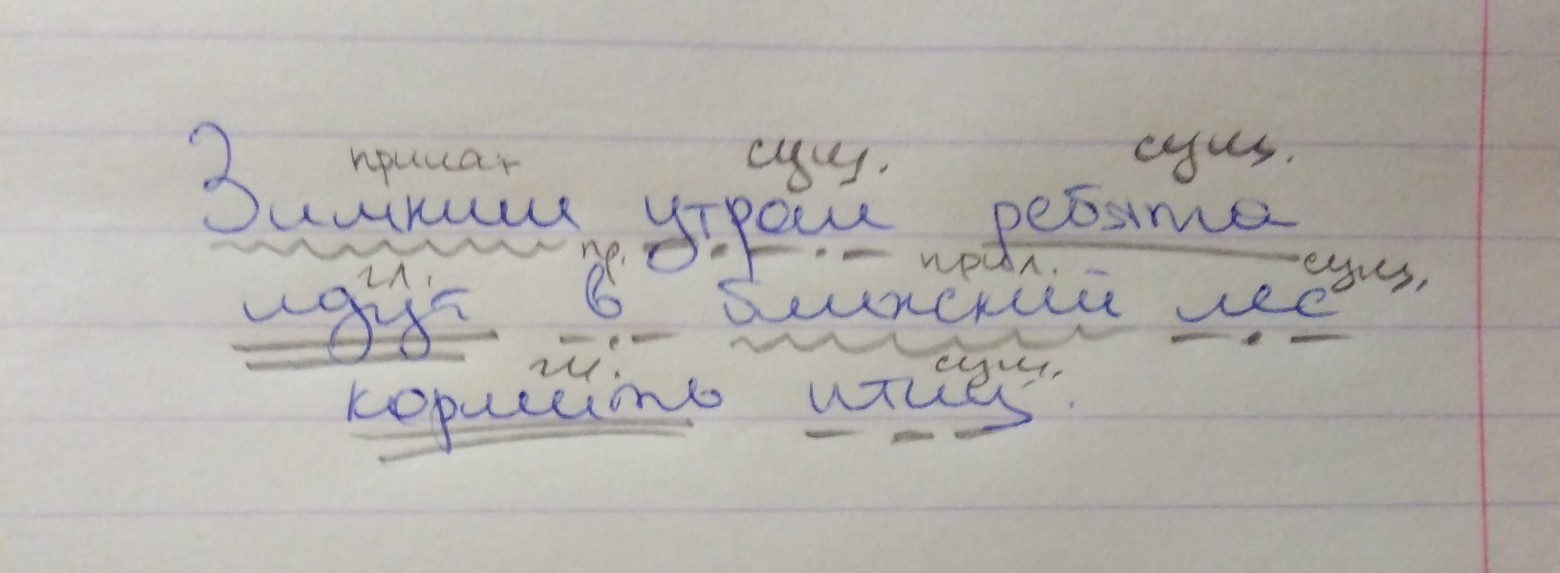 прилаг сущ. сущ.
Зимним утром ребята
гл. пр. прил. сущ.
идут в ближний лес
гл. сущ.
кормить птиц.